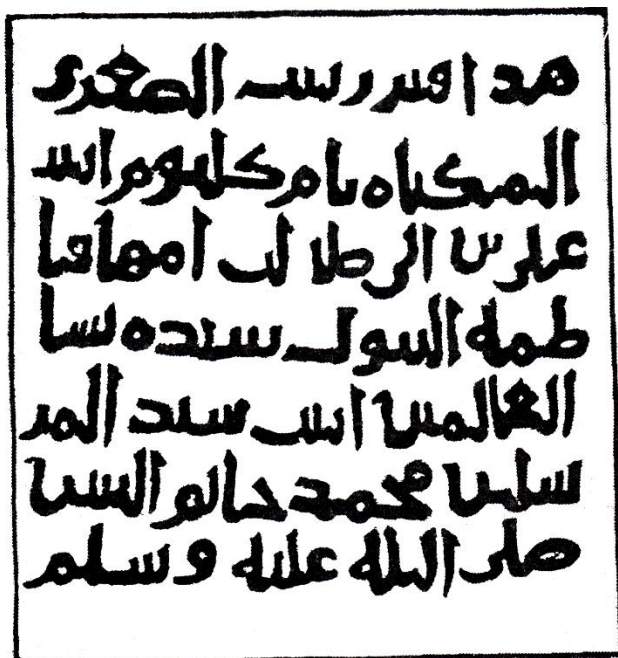 هذا قبر زينب الصغرى
المكناه بام كلثوم ابنت
على بن ابى طالب امها فا
طمه البتول سيده نسا
العالمين ابنت سيد المر
سلين محمد خاتم النبين
صلى الله عليه وسلم